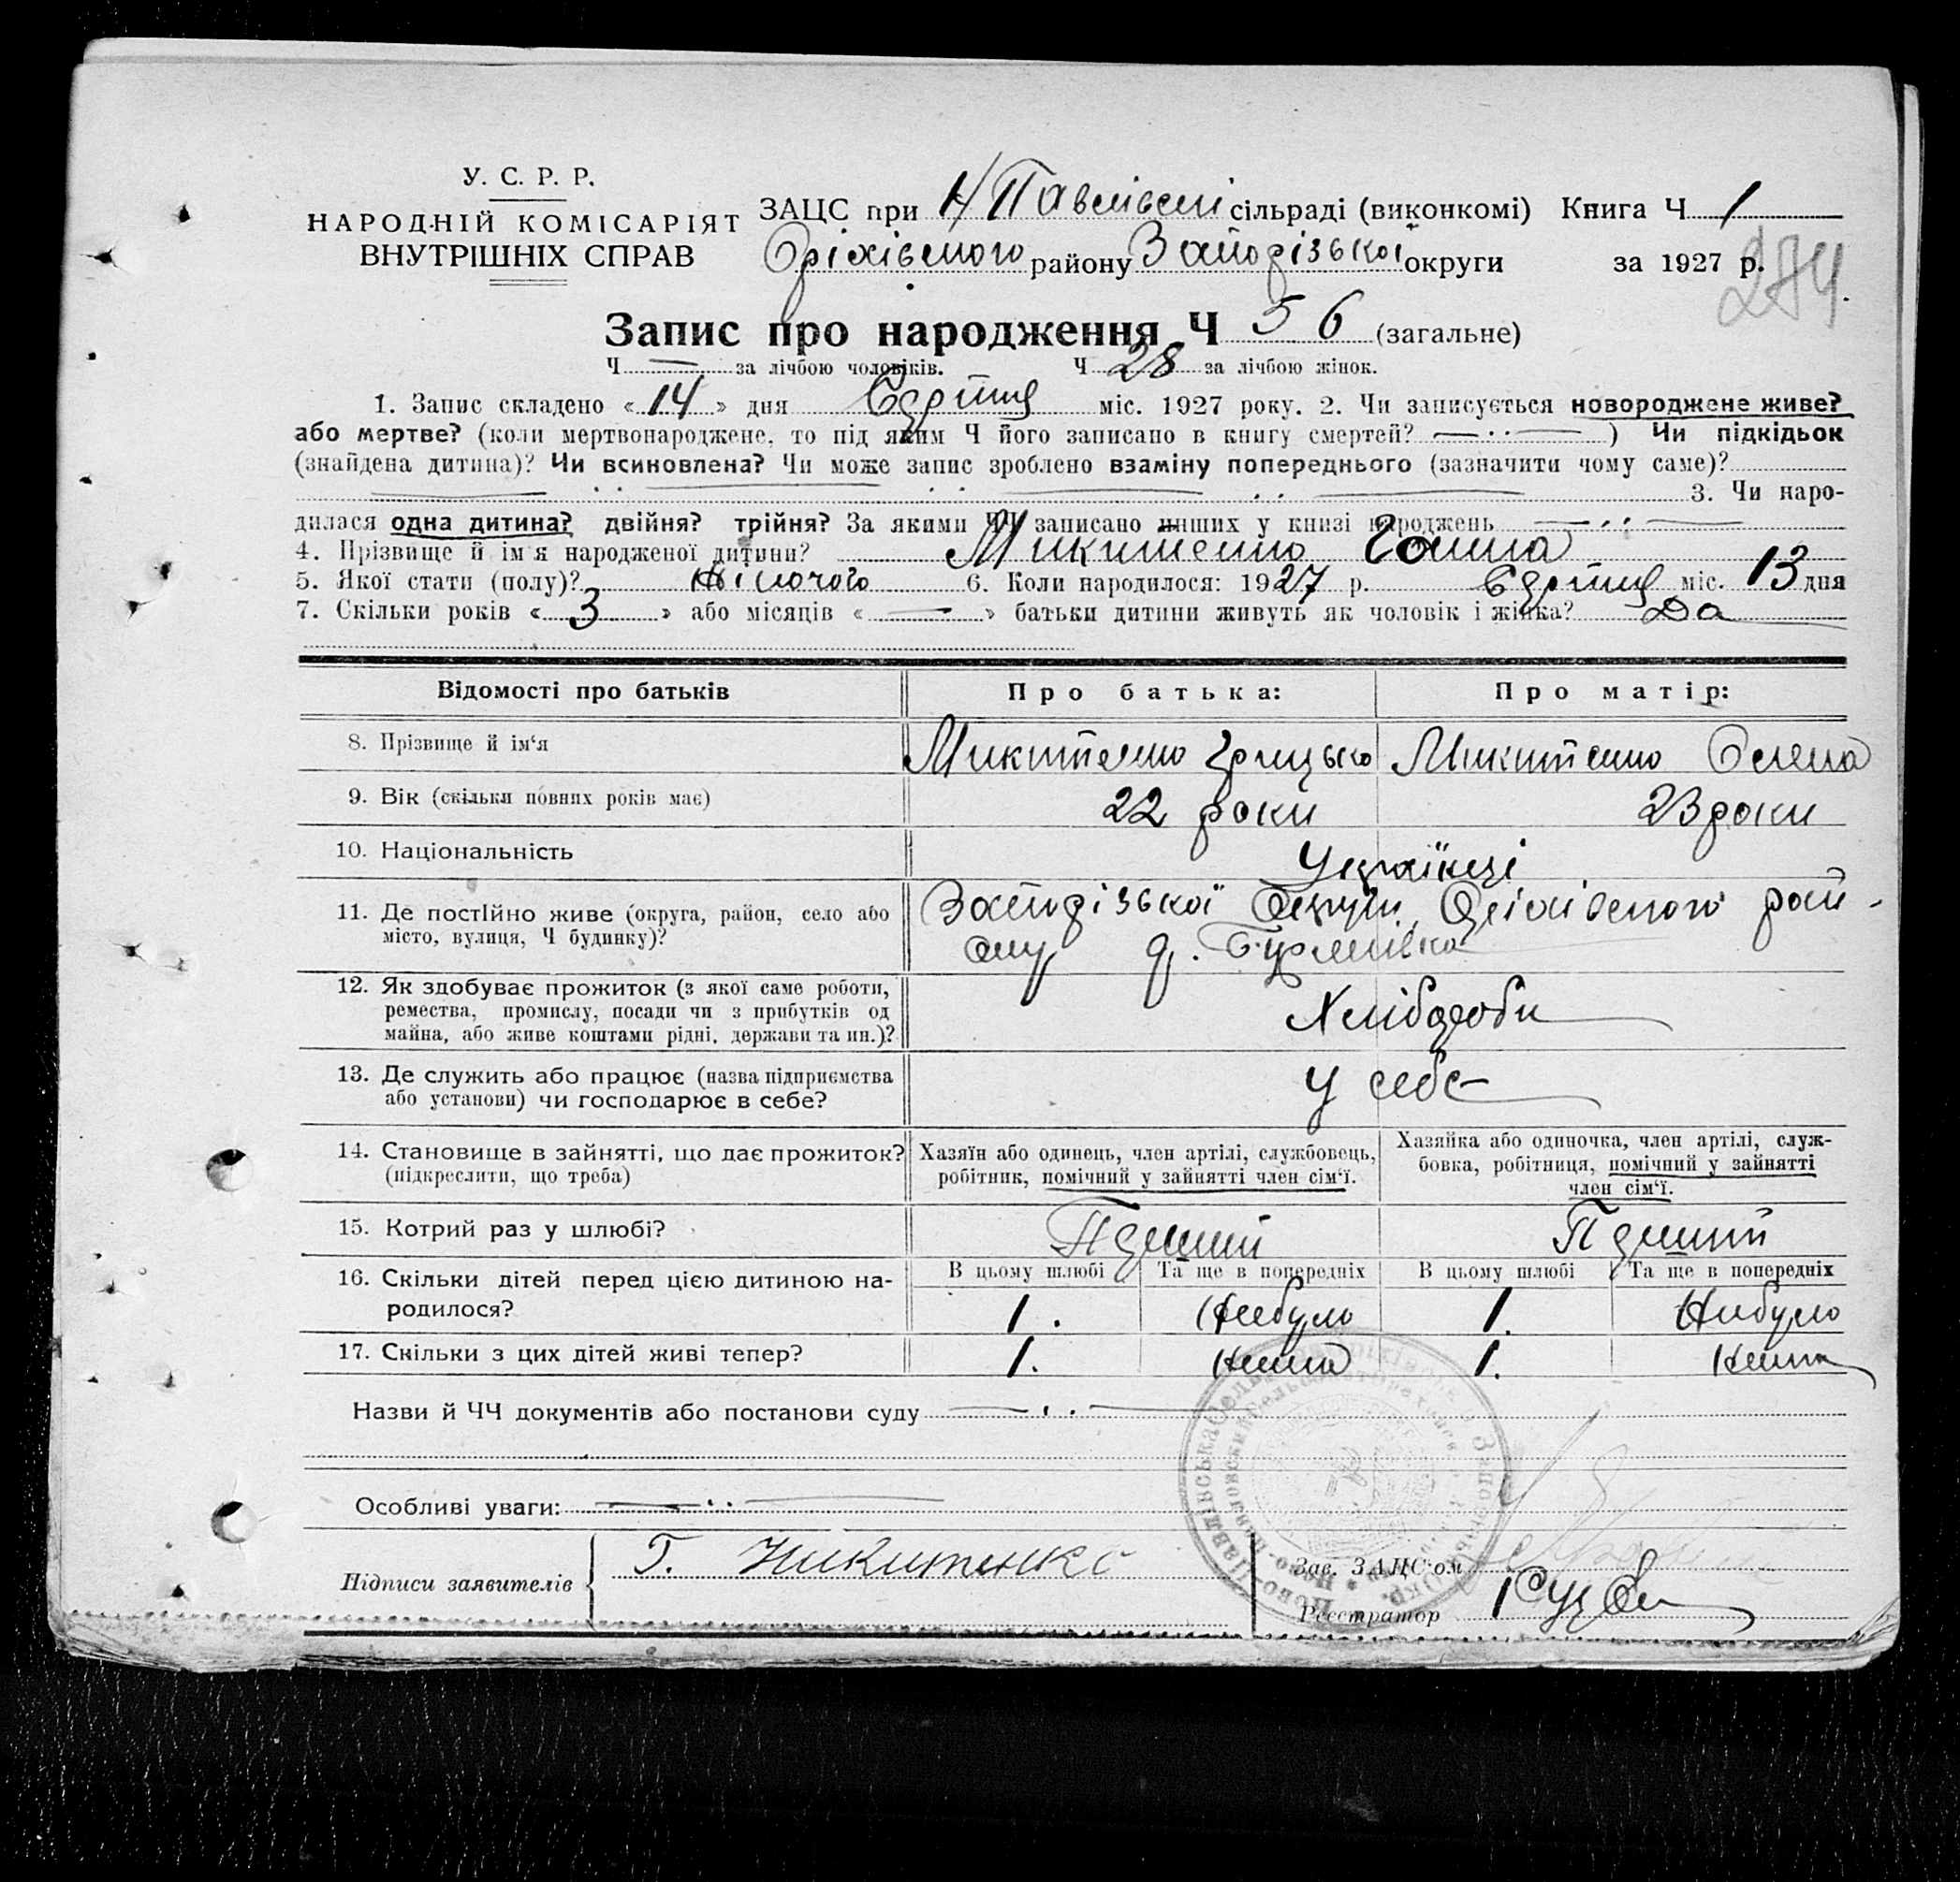 У. С. Р. Р.
НАРОДНІЙ КОМІСАРІЯТ
ВНУТРІШНІХ СПРАВ
ЗАЦС при Н/Павлівській сільраді (виконкомі) Книга Ч 1
Оріхівського району Запорізької округи за 1927 р.
274
Запис про народження Ч 56 (загальне)
Ч — за лічбою чоловіків. Ч 28 за лічбою жінок.
1. Запис складено « 14 » дня Серпня міс. 1927 року. 2. Чи записується новороджене живе?
або мертве? (коли мертвонароджене, то під яким Ч його записано в книгу смертей? — ·· — ) Чи підкідьок
(знайдена дитина)? Чи всиновлена? Чи може запис зроблено взаміну попереднього (зазначити чому саме)?
3. Чи наро-
дилася одна дитина? двійня? трійня? За якими ЧЧ записано инших у книзі народжень — ·· —
4. Прізвище й ім'я народженої дитини? Микитенко Ганна
5. Якої стати (полу)? Жіночого 6. Коли народилося: 1927 р. Серпня міс. 13 дня
7. Скільки років « 3 » або місяців « — » батьки дитини живуть як чоловік і жінка? Да
Відомості про батьків Про батька: Про матір:
8. Прізвище й ім'я Микитенко Грицько Микитенко Олена
9. Вік (скільки повних років має) 22 роки 23 роки
10. Національність Українці
11. Де постійно живе (округа, район, село або
місто, вулиця, Ч будинку)?
Запорізької Округи, Оріхівського рай-
ону д.
12. Як здобуває прожиток (з якої саме роботи,
ремества, промислу, посади чи з прибутків од
майна, або живе коштами рідні, держави та ин.)?
Хлібороби
13. Де служить або працює (назва підприємства
або установи) чи господарює в себе?
У себе
14. Становище в зайнятті, що дає прожиток?
(підкреслити, що треба)
Хазяїн або одинець, член артілі, службовець,
робітник, помічний у зайнятті член сім'ї.
Хазяйка або одиночка, член артілі, служ-
бовка, робітниця, помічний у зайнятті
член сім'ї.
15. Котрий раз у шлюбі? Перший Перший
16. Скільки дітей перед цією дитиною на-
родилося?
В цьому шлюбі Та ще в попередніх В цьому шлюбі Та ще в попередніх
1. Небуло 1. Небуло
17. Скільки з цих дітей живі тепер? 1. Нема 1. Нема
Назви й ЧЧ документів або постанови суду — ·· —
Особливі уваги: — ·· —
Підписи заявителів Г. Никитенко
Зав. ЗАЦС·ом
Реєстратор